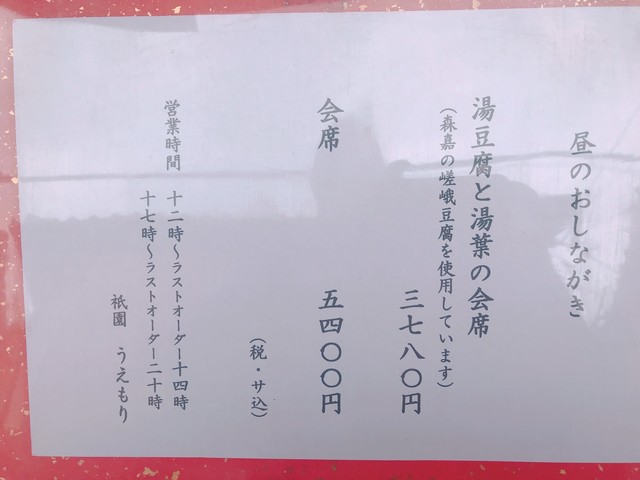 昼のおしながき
湯豆腐と湯葉の会席
(森嘉の嵯峨豆腐を使用しています)
三七八〇円
会席
五四〇〇円
(税・サ込)
営業時間 十二時～ラストオーダー十四時
十七時～ラストオーダー二十時
祇園 うえもり